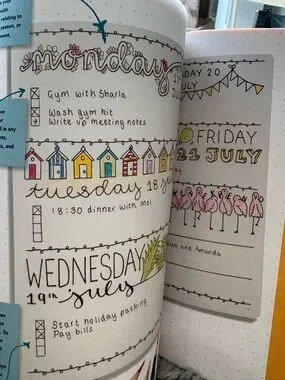 relating to
season, or
monday
Gym with Sharla
Wash gym kit
Write up meeting notes
in any
and
tuesday 18
18:30 dinner with Mel
WEDNESDAY
19th July
Start holiday packing
Pay bills
DAY 20
ULY
FRIDAY
21 JULY
and Amanda